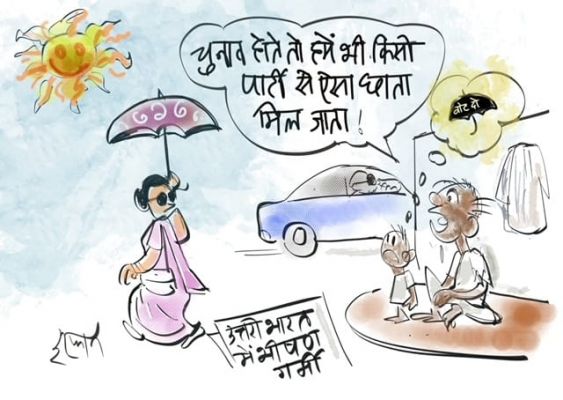 चुनाव होते तो हमें भी किसी
पार्टी से ऐसा छाता
मिल जाता!
वोट दो
उत्तरी भारत
में भीषण
गर्मी